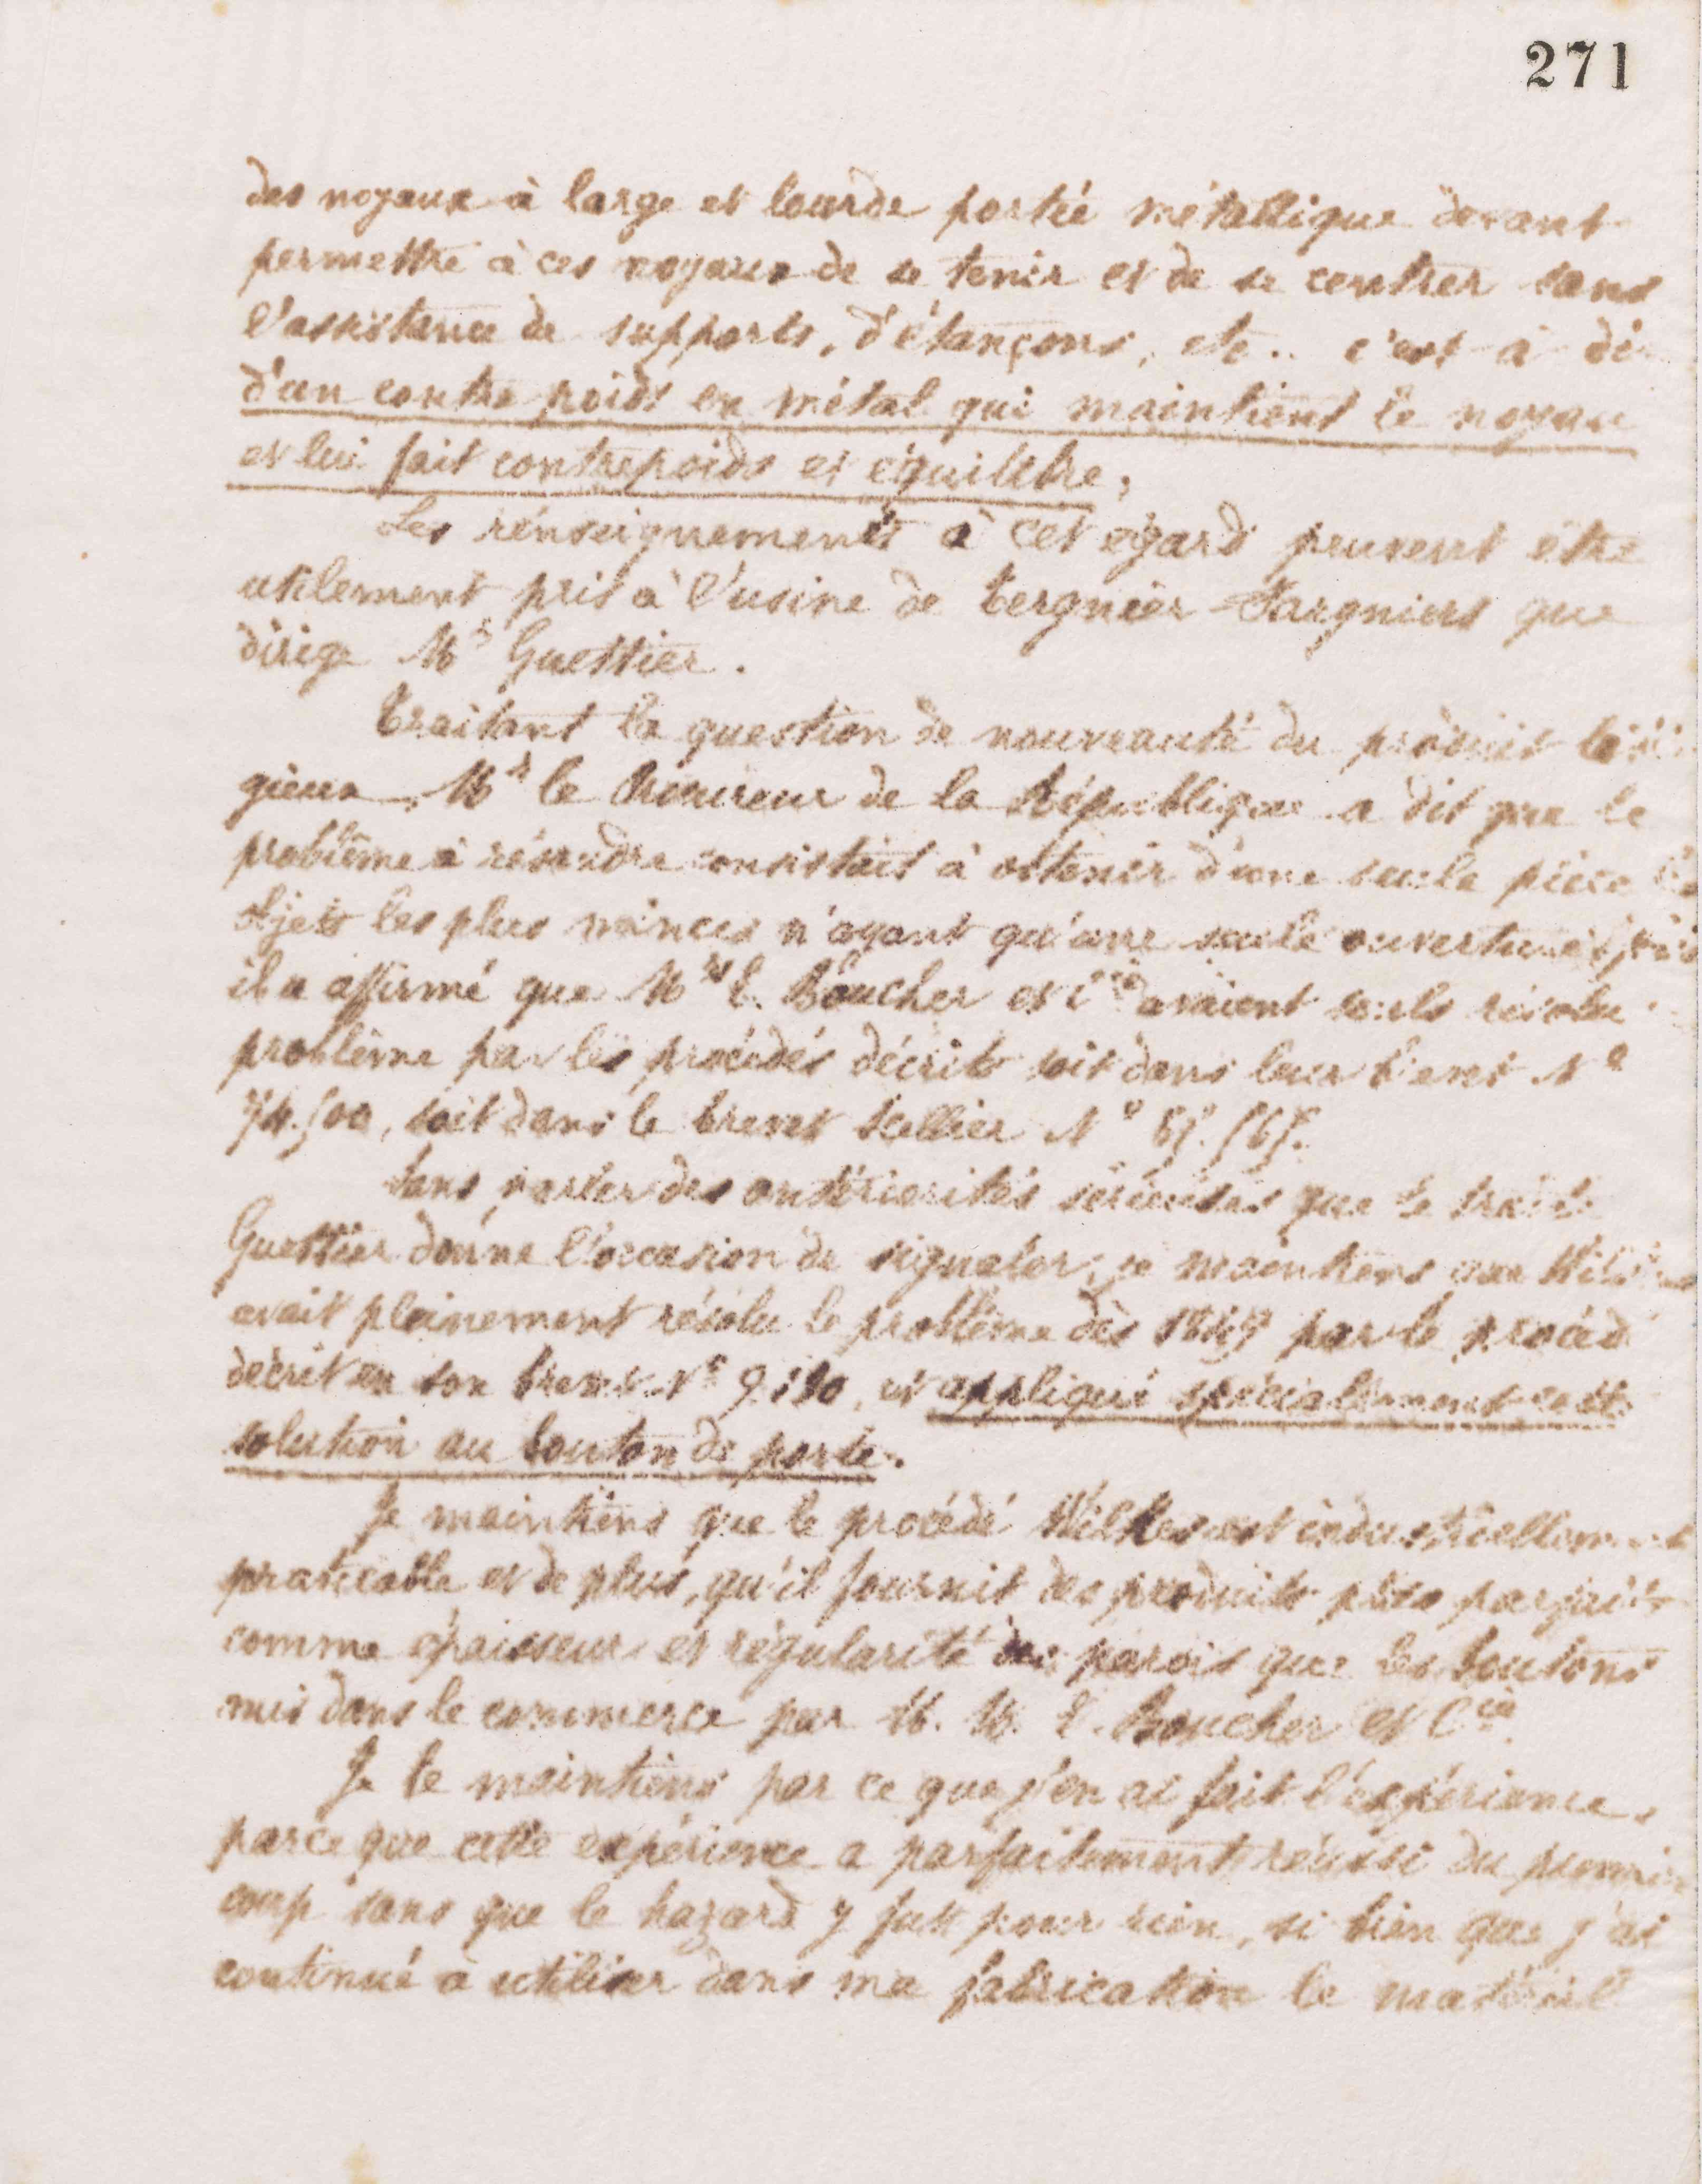 271
des noyaux à large et lourde portée métallique devant
permettre à ces noyaux de se tenir et de se centrer sans
l'assistance de supports, d'étançons, etc.. c'est-à-di
d'un contre poids en métal qui maintient le noyau
et lui fait contrepoids et équilibre,
Les renseignements à cet égard peuvent être
utilement pris à l'usine de Tergnier Fargniers que
dirige Mr Guettier.
Traitant la question de nouveauté du produit
gieux, Mr le Procureur de la République a dit que le
problème à résoudre consistait à obtenir d'une seule pièce
objets les plus minces n'ayant qu'une seule ouverture
il a affirmé que Mrs E. Boucher et Cie avaient seuls résolu
problème par les procédés décrits soit dans leur brevet No
soit dans le brevet Scellier No
Sans parler des antériorités sérieuses que le traité
Guettier donne l'occasion de signaler, je maintiens que
avait pleinement résolu le problème dès 1849 par le procéd
décrit en son brevet No et appliqué spécialement cette
solution au bouton de porte.
Je maintiens que le procédé Wilkes est industriellement
praticable et de plus, qu'il fournit des produits plus parfaits
comme épaisseur et régularité des parois que les boutons
mis dans le commerce par M. M. E. Boucher et Cie.
Je le maintiens par ce que j'en ai fait l'expérience,
parce que cette expérience a parfaitement réussi du premier
coup sans que le hazard y fut pour rien, si bien que j'ai
continué à utiliser dans ma fabrication le matériel